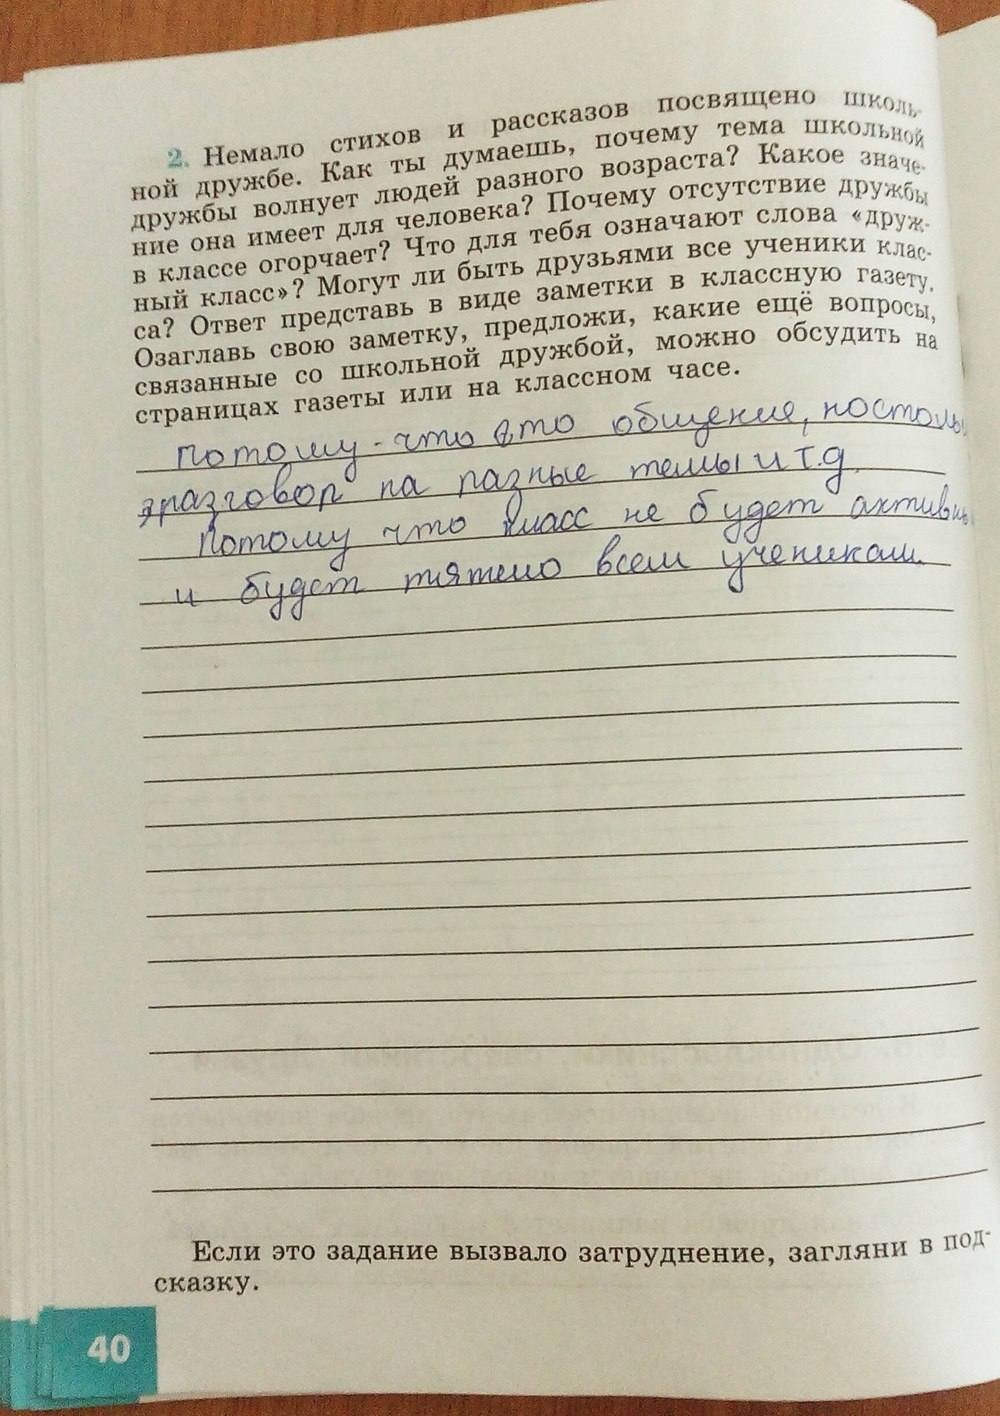 2. Немало стихов и рассказов посвящено школь-
ной дружбе. Как ты думаешь, почему тема школьной
дружбы волнует людей разного возраста? Какое значе-
ние она имеет для человека? Почему отсутствие дружбы
в классе огорчает? Что для тебя означают слова «друж-
ный класс»? Могут ли быть друзьями все ученики клас-
са? Ответ представь в виде заметки в классную газету.
Озаглавь свою заметку, предложи, какие ещё вопросы,
связанные со школьной дружбой, можно обсудить на
страницах газеты или на классном часе.
Потому-что это общение,
разговор на разные темы и т.д.
Потому что класс не будет
и будет тяжело всем ученикам.
Если это задание вызвало затруднение, загляни в под-
сказку.
40